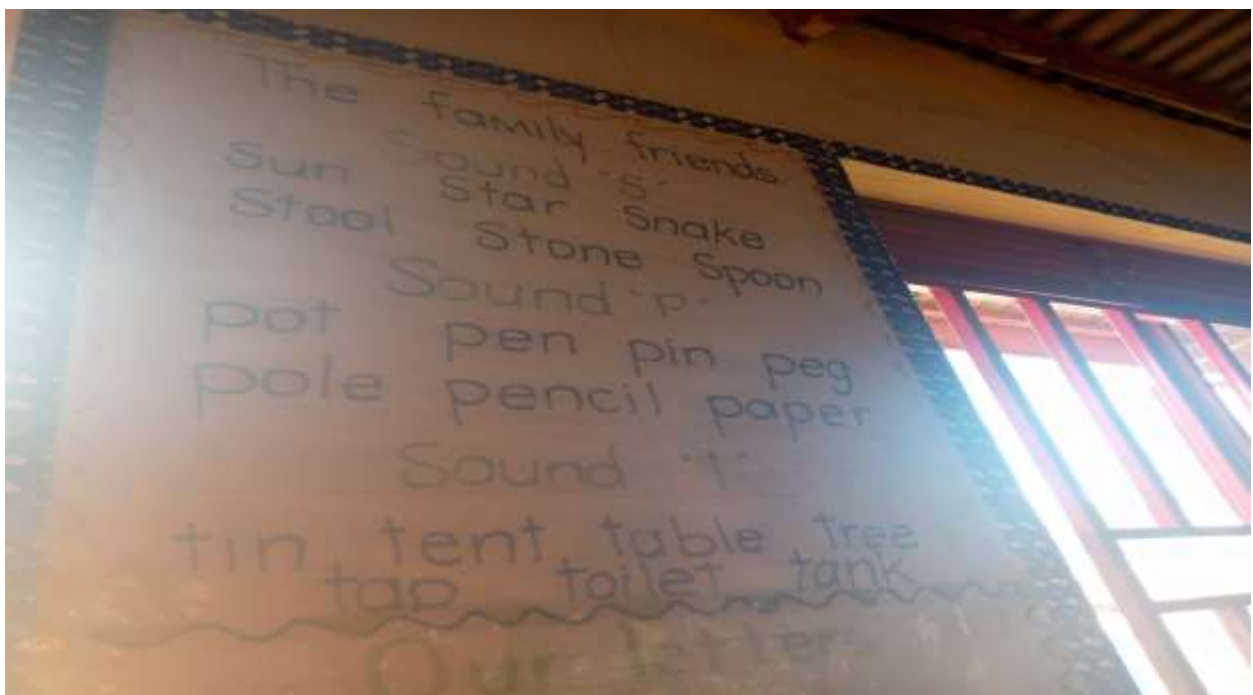 The family friends
Sound "s"
Sun Star Snake
Stool Stone Spoon
Sound "p"
pot pen pin peg
pole pencil paper
Sound "t"
tin tent table tree
tap toilet tank
Our letter